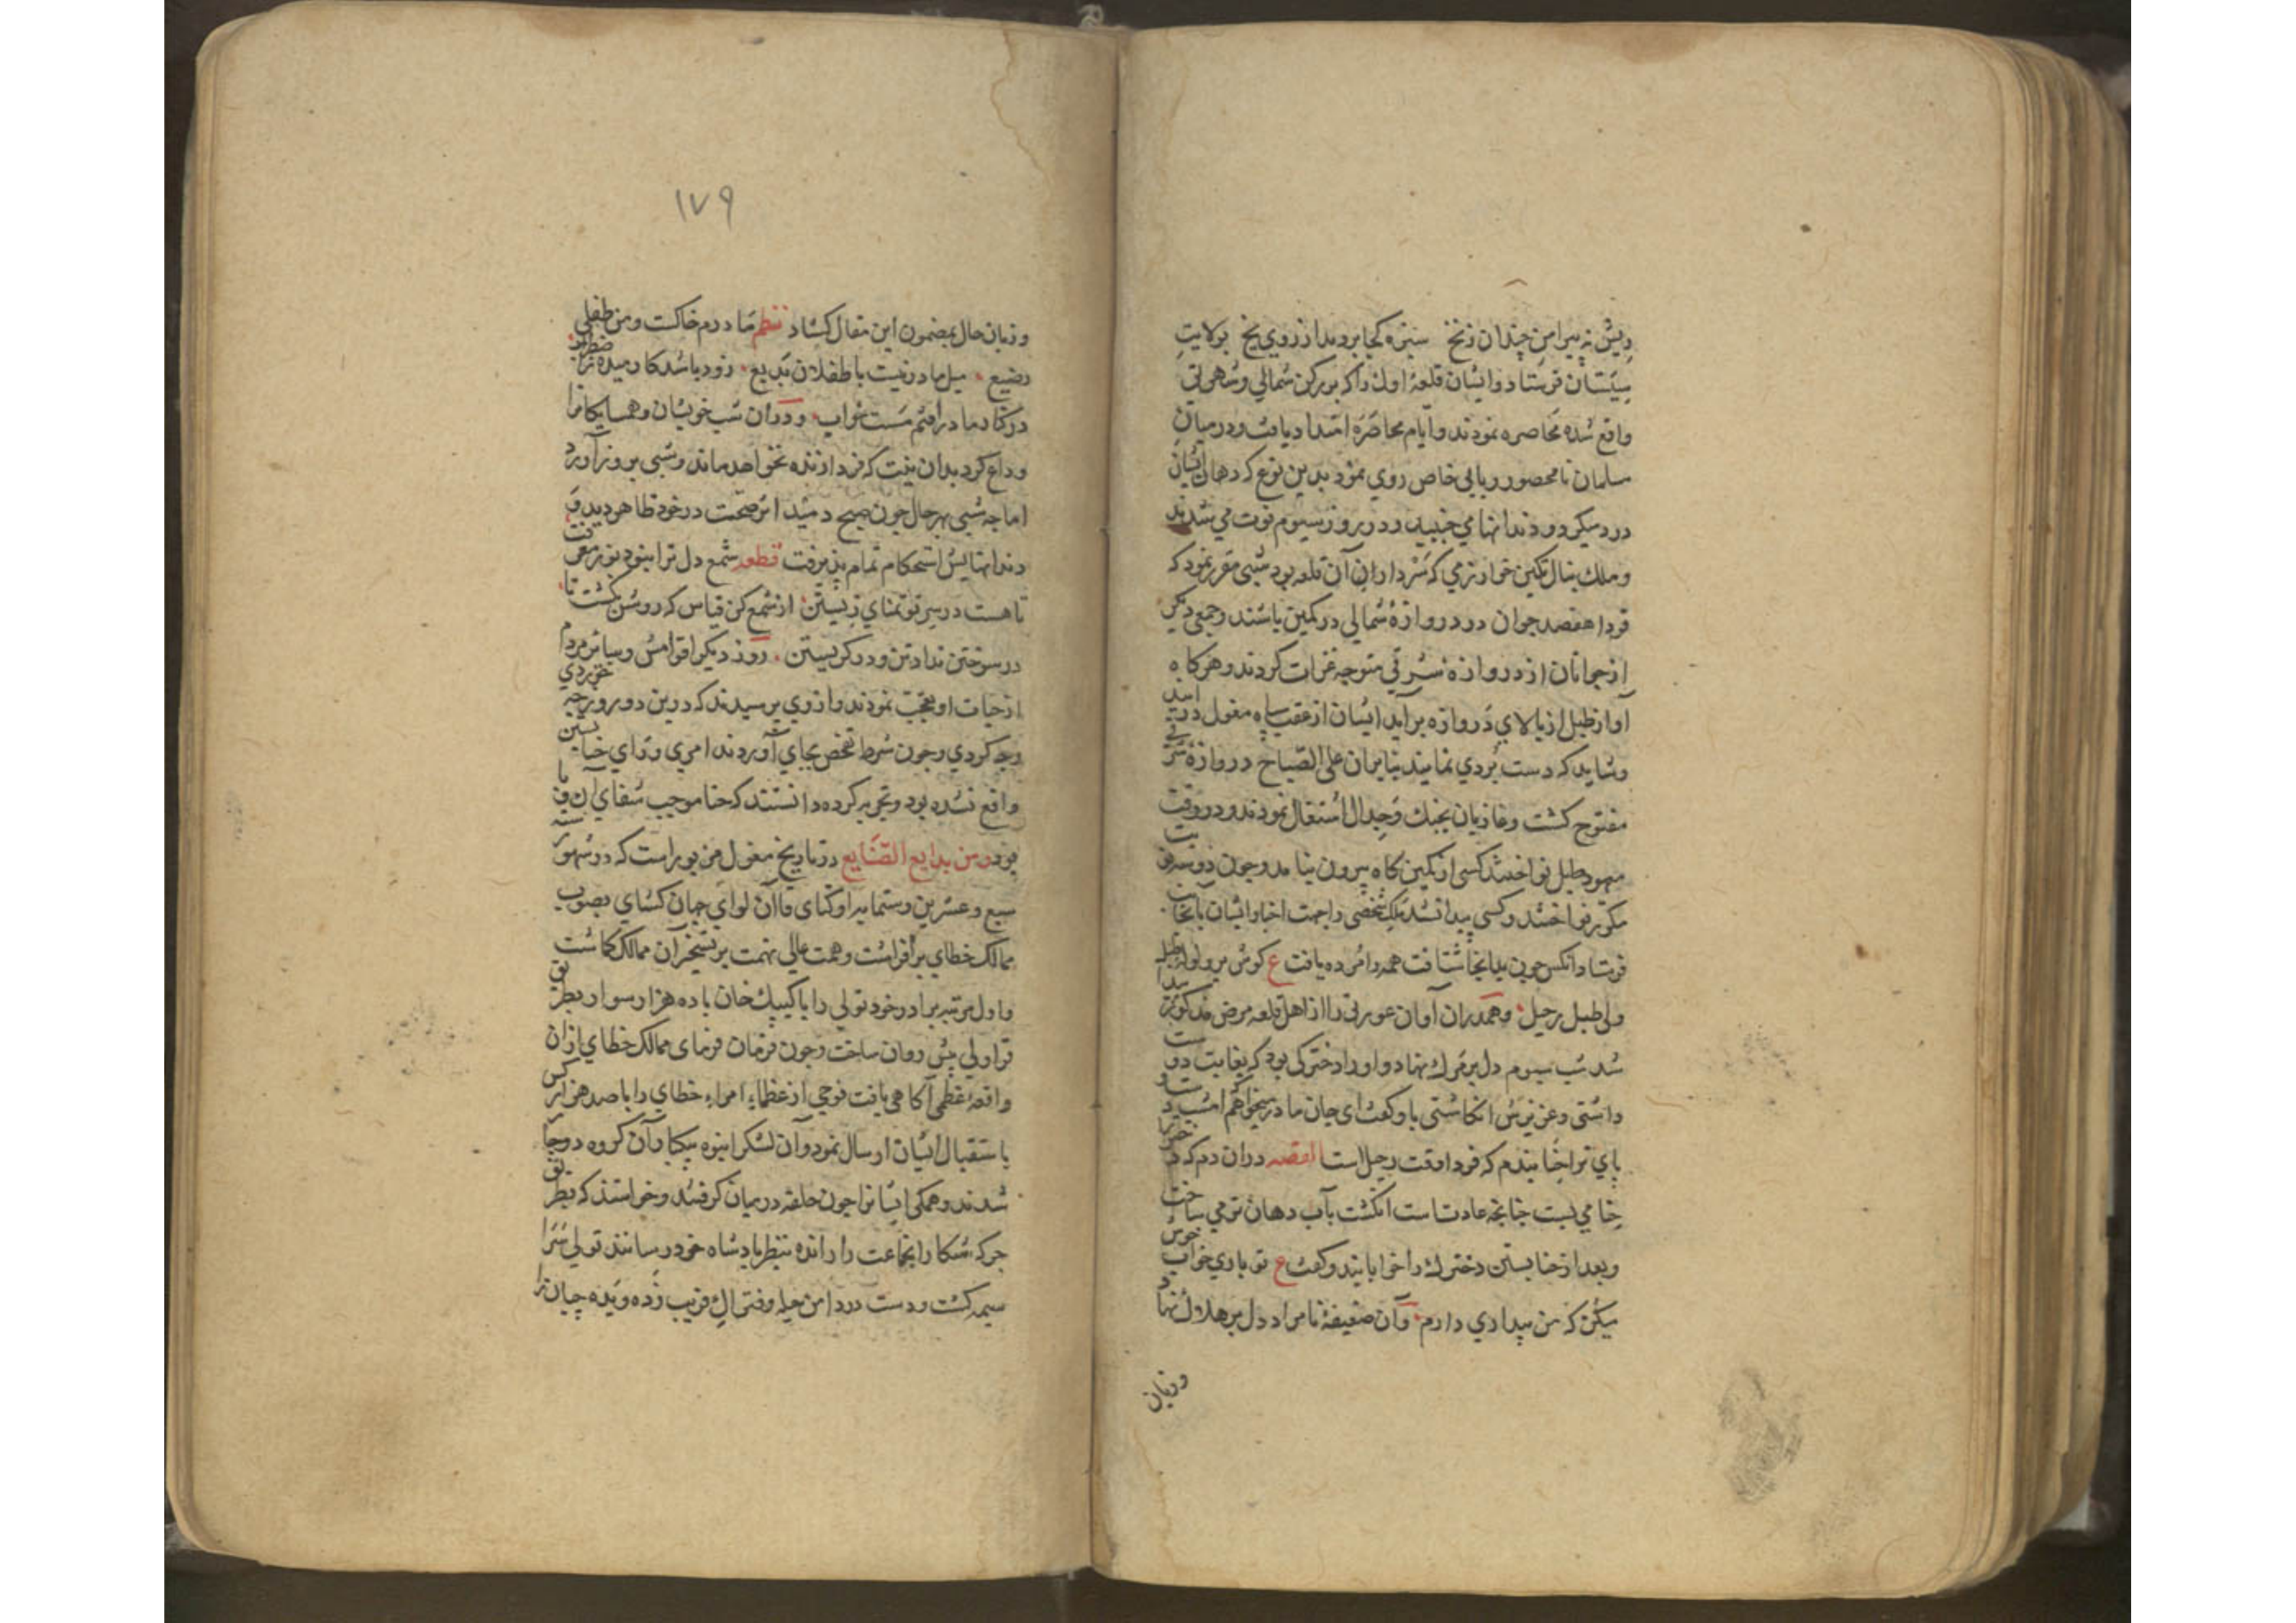 ریش نه پیرامن چندان زنخ سبزه کجا بردمد از روی یخ بولایت
سیستان فرستاد و ایشان قلعهٔ اول را که بر رکن شمالی وشهرتی
واقع شده محاصره نمودند و ایام محاصره امتداد یافت و در میان
سلمان نامحصور وبایی خاص روی نمود بدین نوع که دهان ایشان
درد میکرد و دندانها می جنبید و در روز سیوم فوت می شدند
وملك ینال تکین خوارزمی که سردار اران آن قلعه بود شبی مقرر نمود که
فردا هفصد جوان در دروازهٔ شمالی در کمین باشند وجمعی دیگر
از جوانان از دروازهٔ شرقی متوجه غزات کردند وهرکاه
آواز طبل از بالای دروازه براید ایشان از عقب سپاه مغول در آیند
وشاید که دست بردی نمایند بنابران علی الصباح دروازهٔ شرقی
مفتوح کشت وغازیان بجنك وجدال اشتغال نمودند و در وقت
معهود طبل نواختند کسی از کمین کاه بیرون نیامد وچون دو سه نوبت
مکرر نواختند وکسی پیدا نشد ملك شخصی را جهت اخبار ایشان بآنجانب
فرستاد انکس چون بدانجا شتافت همه را مرده یافت ع کوش بر ولوله طبل
ولی طبل رحیل وهمدران آوان عورتی را از اهل قلعه مرض مذکور پیدا
شد شب سیوم دل بر مرك نهاد و او را دخترکی بود که بغایت دوست
داشتی وعزیزش انکاشتی باو کفت ای جان مادر میخواهم امشب دست و
پای ترا حنا بندم که فردا وقت رحیل است القصه دران دم که دختر را
حنا می بست چنانچه عادتست انکشت بآب دهان تر می ساخت
وبعد از حنا بستن دخترك را خوابانید وکفت ع تو باری خواب خوش
میکن که من بیداری دارم وآن ضعیفهٔ نامراد دل بر هلاك نهاد
وزبان
١٧٩
وزبان حال بمضمون این مقال کشاد نظم مادرم خاکست ومن طفلی
رضیع میل مادر نیست با طفلان بدیع زود باشد کارمیده ز اضطراب
در کنار مادر افتم مست خواب ودران شب خویشان وهمسایکانرا
وداع کرد بدان نیت که فردا زنده نخواهد ماند وشبی بروز آورد
اما چه شبی بهر حال چون صبح دمید اثر صحت در خود ظاهر دید و
دندانهایش استحکام تمام پذیرفت قطعه شمع دل ترا نبود نور معرفت
تا هست در سر تو تمنای زیستن از شمع کن قیاس که روشن نکشت تا
در سوختن نداد تن و در کریستن روز دیکر اقوامش وسایر مردم
از حیات او تعجب نمودند و از وی پرسیدند که درین دو روز چه خوردی
وچه کردی وچون شرط تفحص بجای آوردند امری ورای حنا بستن
واقع نشده بود وتجربه کرده دانستند که حنا موجب شفای آن وبا
بود ومن بدایع الصنایع در تاریخ مغول مزبور است که در شهور سنه
سبع وعشرین وستمایه اوکتای قاآن لوای جهان کشای بصوب
ممالك خطای برافراشت وهمت عالی نهمت بر تسخیر آن ممالك کماشت
واول مرتبه برادر خود تولی را با کیبك خان با ده هزار سوار بطریق
قراولی پیش روان ساخت وچون فرمان فرمای ممالك خطای ازان
واقعهٔ عظمی آکاهی یافت فوجی از عظماء امراء خطای را با صد هزار کس
باستقبال ایشان ارسال نمود وآن لشکر انبوه بیکبار بآن کروه دوچار
شدند وهمکی ایشانرا چون حلقه درمیان کرفتند وخواستند که بطریق
جرکه شکار انجماعت را رانده بنظر پادشاه خود رسانند تولی سرا
سیمه کشت ودست در دامن حیله وفتراك فریب زده ویده چیانرا